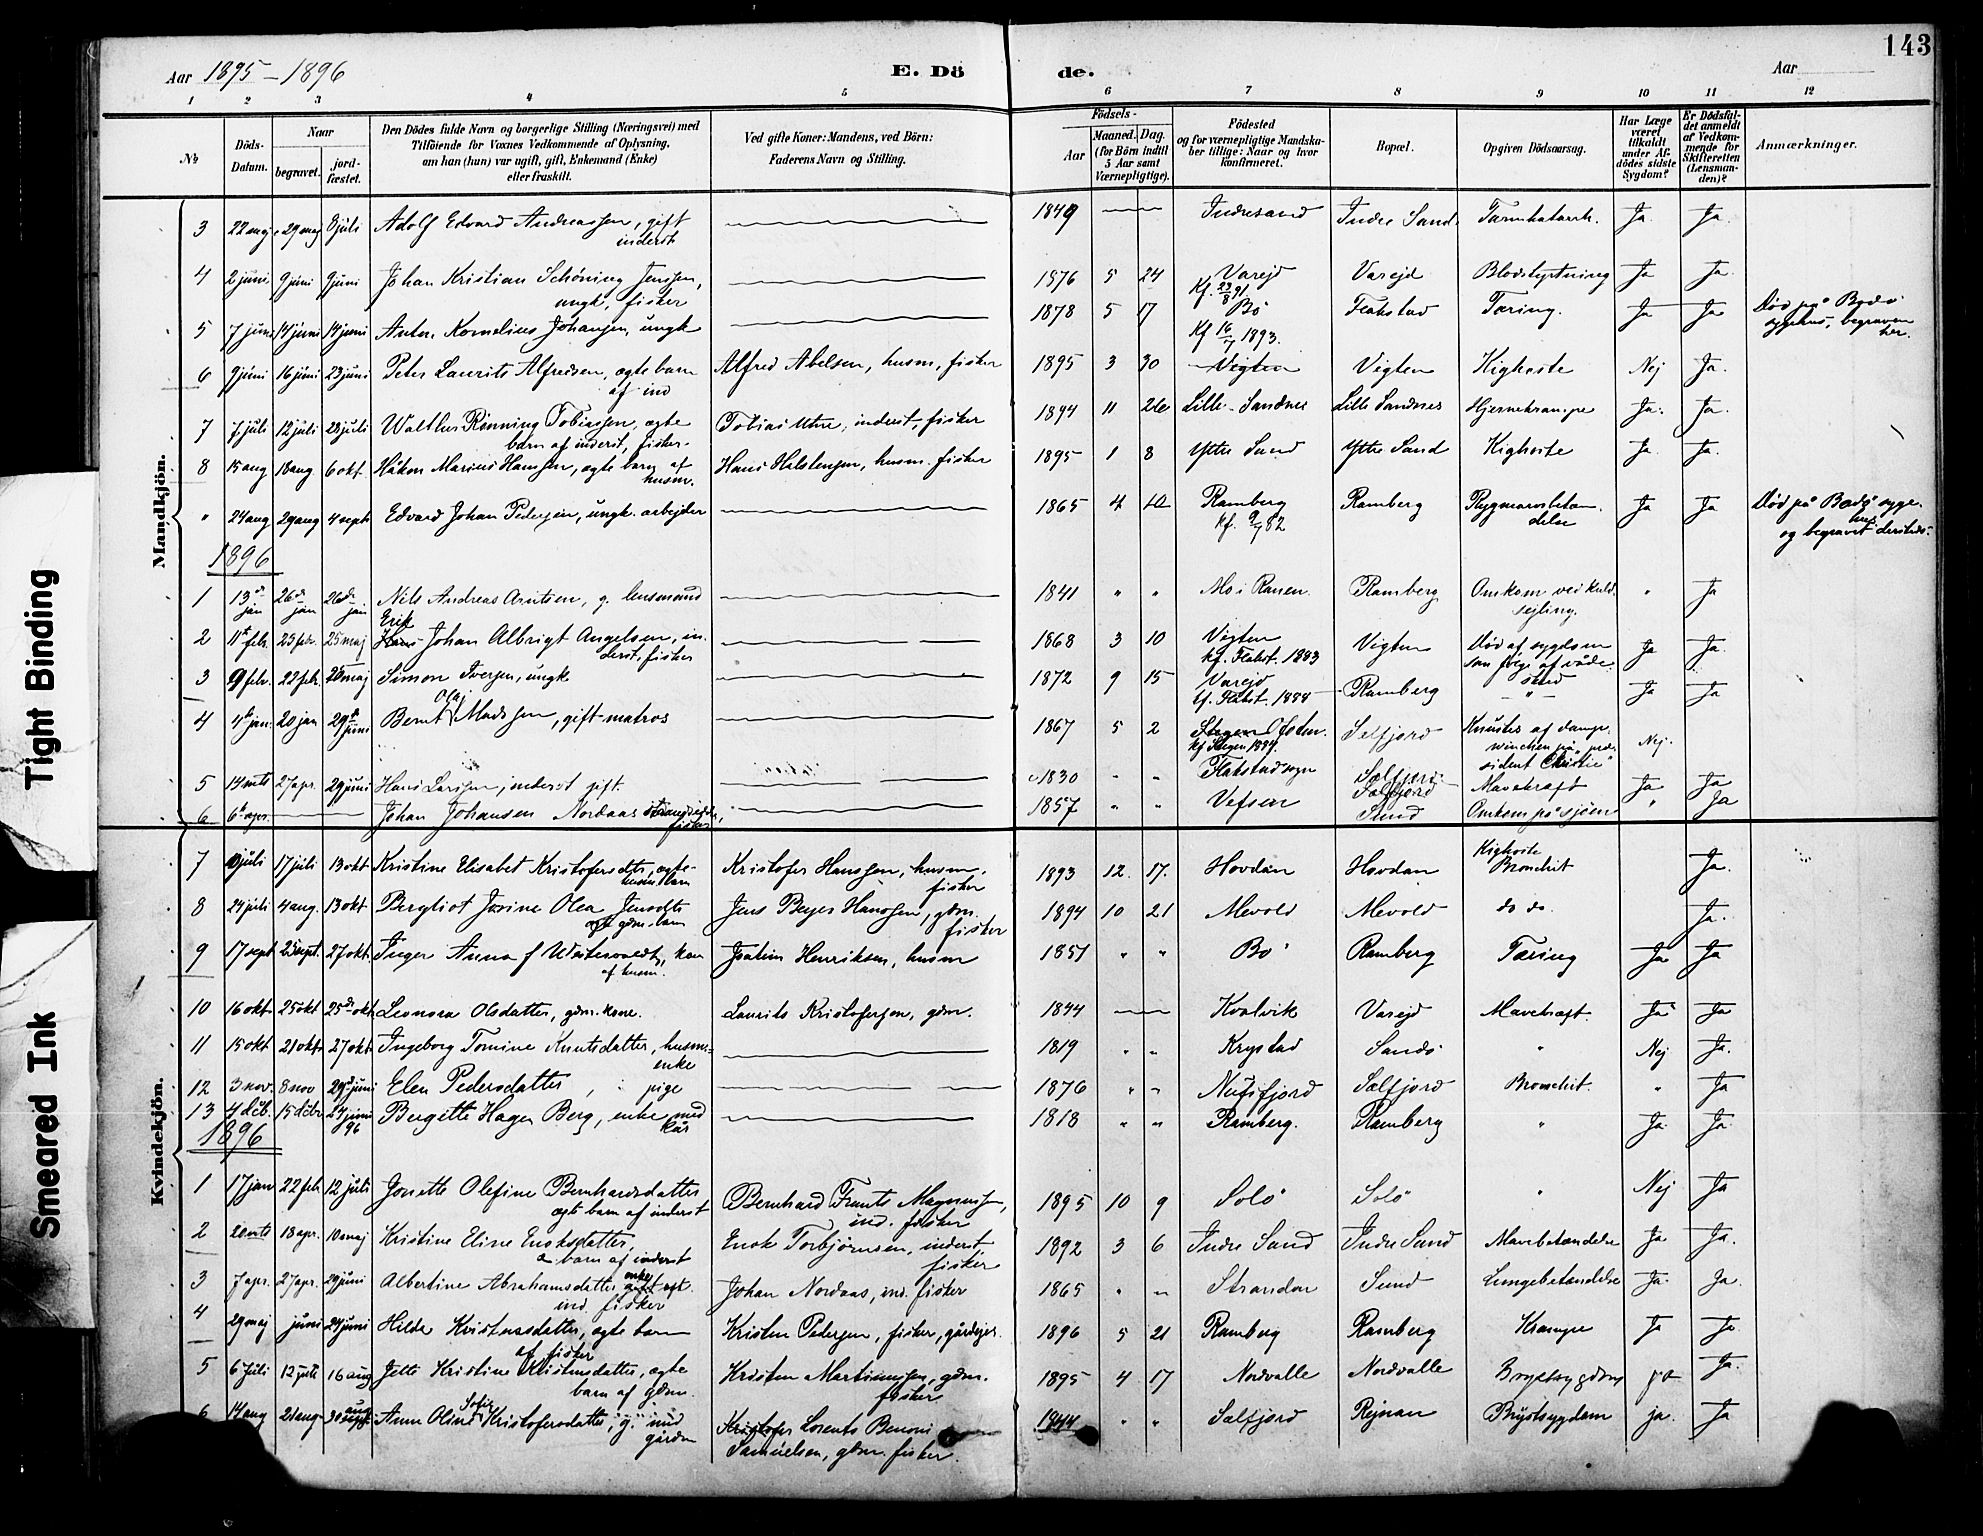 143
Aar 1895-1896
E. Dö
de.
Aar
1 2 3 4 5 6 7 8 9 10 11 12
№
Döds-
Datum.
Naar
begravet.
jord-
fæstet.
Den Dödes fulde Navn og borgerlige Stilling (Næringsvei) med
Tilföiende for Voxnes Vedkommende af Oplysning,
om han (hun) var ugift, gift, Enkemand (Enke)
eller fraskilt.
Ved gifte Koner: Mandens, ved Börn:
Faderens Navn og Stilling.
Födsels-
Aar
Maaned. Dag.
(for Börn indtil
5 Aar samt
Værnepligtige).
Födested
og for værnepligtige Mandska-
ber tillige: Naar og hvor
konfirmeret.
Bopæl.
Opgiven Dödsaarsag.
Har Læge
været
tilkaldt
under Af-
dödes sidste
Sygdom?
Er Dödsfal-
det anmeldt
af Vedkom-
mende for
Skifteretten
(Lensman-
den)?
Anmærkninger.
Mandkjön.
3 22 maj 29 maj 8 juli Adolf Edvard Andreassen, gift inderst 1849 Indresand Indre Sand Tarmkatarrh. Ja. Ja.
4 2 juni 9 juni 9 juni Johan Kristian Schöning Jenssen, ungk, fisker 1876 5 24 Varejd Kf. 23/8 91 Varejd Blodstyrtning Ja Ja
5 7 juni 14 juni 14 juni Anton Kornelius Johansen, ungk 1878 5 17 Bö Kf 16/7 1893. Flakstad Tæring. Ja Ja Död på Bodö sygehus, begraven her.
6 9 juni 16 juni 23 juni Peter Laurits Alfredsen, ægte barn af ind Alfred Abelsen, husm. fisker 1895 3 30 Vigten Vigten Kighoste Nej Ja.
7 7 juli 12 juli 28 juli Walther Rönning Tobiassen, ægte barn af inderst, fisker. Tobias Uhre, inderst, fisker 1894 11 26 Lille-Sandnes Lille Sandnes Hjernekrampe Ja. Ja.
8 15 aug 18 aug 6 okt. Håkon Marius Hansen, ægte barn af husm. Hans Halstensen, husm. fisker 1895 1 8 Ytre Sand Ytre Sand Kighoste Ja Ja.
" 24 aug 29 aug 4 sept Edvard Johan Pedersen, ungk. arbejder 1865 4 10 Ramberg kf. 9/7 82 Ramberg Rygmarvsbetændelse Ja Ja Död på Bodö sygehus og begravet dersteds.
1896
1 13de jan 26de jan 26de jan Nils Andreas Arntsen, g. lensmand 1841 " " Mo i Ranen. Ramberg Omkom ved kuldsejling. " Ja
2 11te febr. 23 febr. 25 maj Hans Erik Johan Albrigt Angelsen, inderst, fisker 1868 3 10 Vigten kf. Flakst. 1883 Vigten Död af sygdom som fölge af våde Ja Ja.
3 9 febr. 22 febr. 25 maj Simon Iversen, ungk 1872 9 15 Varejd kf. Flakst. 1888 Ramberg stød -"- Ja Ja
4 4de jan. 20 jan 29de juni Bernt Olaj Madssen, gift matros 1867 5 2 Stegen Ofoten. kf Stegen 1884. Selfjord Knustes af dampwinchen på "president Christie" Nej.
5 14 mts 27 apr. 29 juni Hans Larssen, inderst gift. 1830 " " Flakstad sogn Selfjord Mavekræft Ja Ja
6 6te apr. Johan Johansen Nordaas strandsidder, fisker 1857 " " Vefsen Sund Omkom på sjöen " Ja
Kvindekjön.
7 juli 17 juli 13 okt Kristine Elisabet Kristofersdtr, ægte husm. barn Kristofer Hanssen, husm. fisker 1893 12. 17. Hovdan Hovdan Kighoste Bronchit Ja.
8 24 juli 4 aug. 13 okt Bergliot Josine Olea Jensdtr ægte gdm. barn Jens Beyer Hanssen, gdm. fisker 1894 10 21 Mevold Mevold do do. Ja.
9 17 sept 23 sept. 27 okt. Inger Anna f Westervaldt, kone af husm. Joakim Henriksen, husm 1851 " " Bö Ramberg Tæring Ja Ja
10 16 okt. 25 okt 25de okt Leonora Olsdatter, gdm. kone. Laurits Kristofersen, gdm. 1844 Kvalvik Varejd Mavekræft. Ja Ja
11 15 okt 21 okt. 27 okt. Ingeborg Tomine Knutsdatter, husms. enke 1819 " " Krystad Sandö " Nej Ja.
12 3 nov. 8 nov 29de juni Elen Pedersdatter, pige 1876 " " Nusfjord Selfjord Bronchit. " Ja
13 4 dcb. 15 dcbr 24 juni 96 Bergette Hagen Berg, enke med kår 1818 " " Ramberg. Ramberg " Ja Ja.
1896
1 17 jan 22 feb 12 juli Jonette Olefine Bernhardsdatter ægte barn af inderst Bernhard Frants Magnussen, ind. fisker 1895 10 9 Solö Solö " Nej Ja
2 20 mts 18 apr. 10 maj Kristine Eline Enoksdatter, æ barn af inderst Enok Torbjörnsen, inderst, fisker 1892 3 6 Indre Sand Indre Sand Mavebetændelse Ja Ja.
3 7 apr. 27 apr. 29 juni Albertine Abrahamsdatter enke gift ind. fisker Johan Nordaas, ind. fisker 1865 " " Strandan Sund Lungebetændelse Ja. Ja.
4 29 maj juni 24 juni Hilda Kristensdatter, ægte barn af fisker Kristen Pedersen, fisker, gårdejer. 1896 5 21 Ramberg Ramberg Krampe Ja Ja.
5 6 juli 12 juli 16 aug Jette Kristine Kristensdatter, ægte barn af gdm. Kristen Martinussen, gdm. fisker 1895 4 17 Nordvalle Nordvalle Brystsygdom ja Ja.
6 14 aug 21 aug 30 aug sept Anna Oline Sofie Kristofersdatter, g. med gårdm Kristofer Lorents Benoni Samuelsen, gdm. fisker. 1844 " " Selfjord Rejnan Brystsygdom ja. Ja
Tight Binding
Smeared Ink